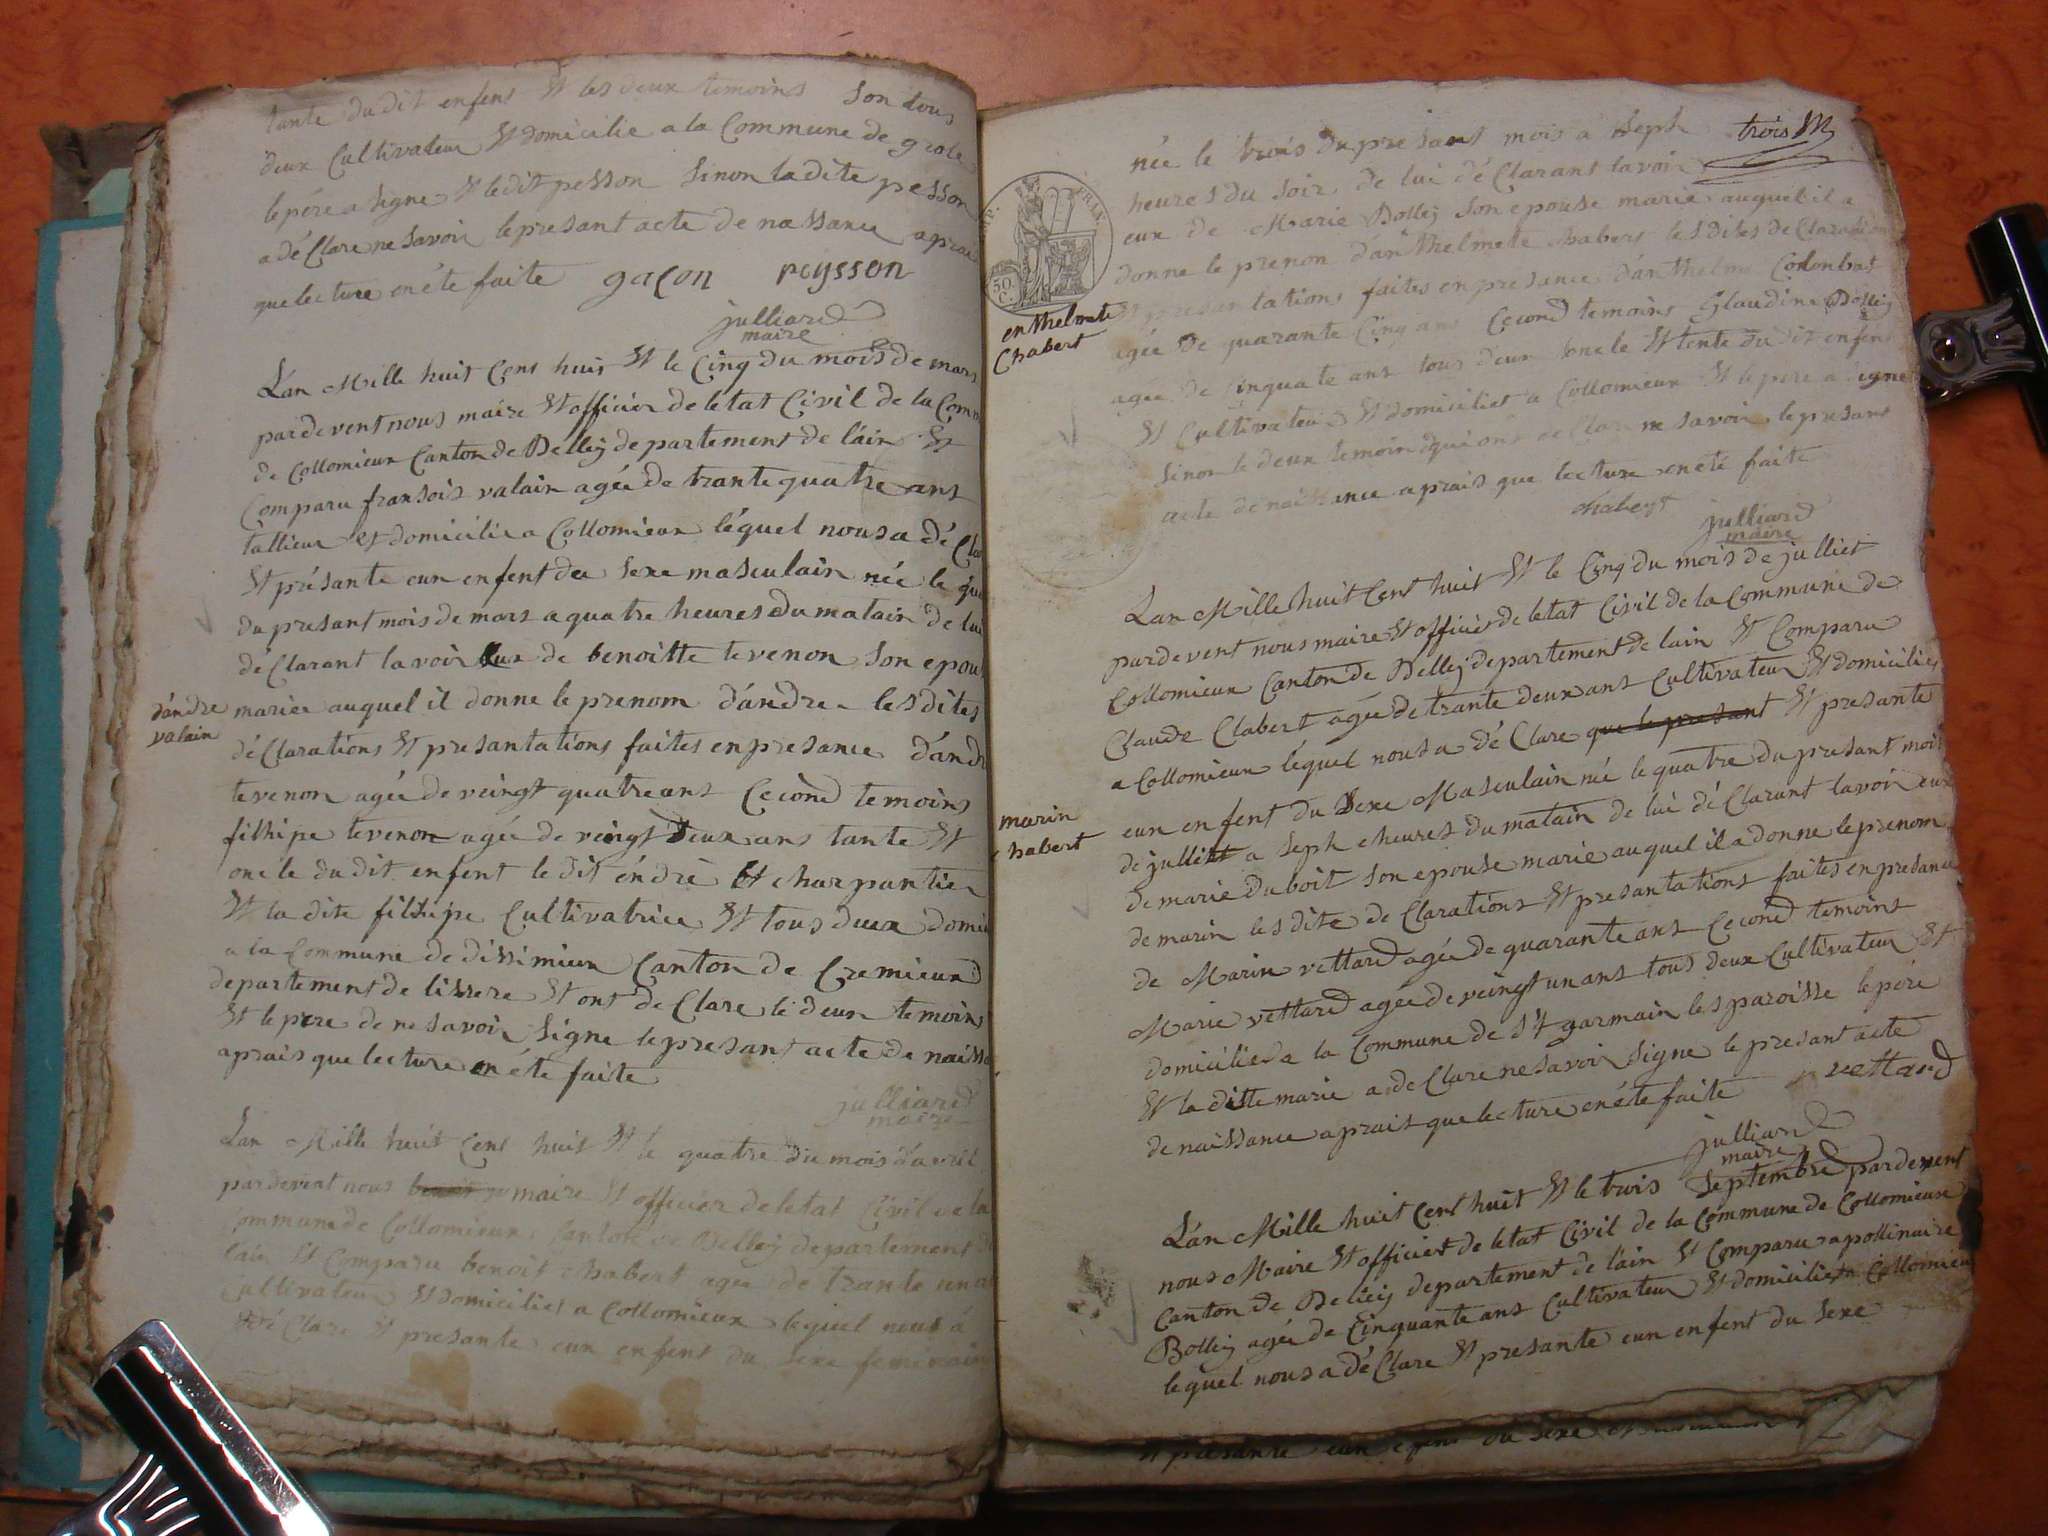 tante du dit enfent Et les deux temoins son tous
deux Cultivateur Et domicilie a la Commune de
le père a signe Et le dit pesson sinon la dite pesson
a déClare ne savoir le presant acte de nassance aprai
que lecture en éte faite gaçon peysson
julliard
maire
L'an Mille huit Cens huit Et le Cinq du mois de mars
pardevent nous maire Et officier de letat Civil de la Comm
de Collomieux Canton de Belleÿ departement de l'ain Et
Comparu fransois valain agée de trante quatre ans
tallieur Et domicilie a Collomieux léquel nous a dé Cla
Et présante eun enfent du sexe masculain née le qu
du presant mois de mars a quatre heures du matain de lui
déClarant lavoir Eux de benoitte tevenon son epou
d'andre
valain
mariee auquel il donne le prenom d'andre les dites
déClarations Et presantations faites en presance d'and
tevenon agée de veingt quatre ans Cecond temoins
filhipe tevenon agée de veingt deux ans tante Et
oncle du dit enfent le dit éndré Et charpantier
Et la dite filhipe Cultivatrice Et tous deux domi
a la Commune de dissimieux Canton de Cremieux
departement de lissere Et ont de Clare le deux temoins
Et le père de ne savoir signe le presant acte de naissa
aprais que lecture en éte faite
julliard
maire
Lan Mille huit Cens huit Et le quatre du mois d'avril
pardevent nous maire Et officier de letat Civil de la
Commune de Collomieux Canton de Belleÿ departement de
lain Et Comparu benoit chabert agée de trante un an
Cultivateur Et domiciliet a Collomieux lequel nous a
dé Clare Et presante eun enfent du sexe feminain
née le trois du presant mois a seph
trois
heures du soir de lui dé Clarant lavoir
eux de Marie Bolleÿ son epouse marie auquel il a
donne le prenon d'anthelmete chabert les dites de Claration
50
C.
enthelmete
Chabert
Et presantations faites en presance d'anthelme Colonbat
agée de quarante Cinq ans Cecond temoins Glaudine Bolleÿ
agée de Cinquate ans tous deux oncle Et tente du dit enfent
Et Cultivateur Et domiciliet a Collomieux Et le père a signe
sinon le deux temoins qui ont de Clare ne savoir le presant
acte de naissance aprais que lecture en éte faite
chabert
julliard
maire
Lan Mille huit Cent huit Et le Cinq du mois de julliet
pardevent nous maire Et officier de letat Civil de la Commune de
Collomieux Canton de Belleÿ departement de lain Et Comparu
Claude Clabert agée de trante deux ans Cultivateur Et domicilié
a Collomieux léquel nous a dé Clare que le presant Et presante
eun enfent du sexe Masculain né le quatre du presant mois
marin
chabert
de julliet a seph eheures du matain de lui dé Clarant lavoir eux
de marie duboit son epouse marie auquel il a donne le prenom
de marin les dite de Clarations Et presantations faites en presance
de Marin vettard agée de quarante ans Cecond temoins
Marie vettard agée de veingt un ans tous deux Cultivateur Et
domicilies a la Commune de St garmain les paroisse le père
Et la ditte marie a de Clare ne savoir signe le presant acte
de naissance aprais que lecture en éte faite vettard
julliard
maire
L'an Mille huit Cent huit Et le trois septembre pardevent
nous Maire Et officier de letat Civil de la Commune de Collomieux
Canton de Belleÿ departement de l'ain Et Comparu apollinaire
Bolleÿ agée de Cinquante ans Cultivateur Et domiciliet a Collomieux
lequel nous a dé Clare Et presante eun enfent du sexe
Et presante eun enfent du sexe